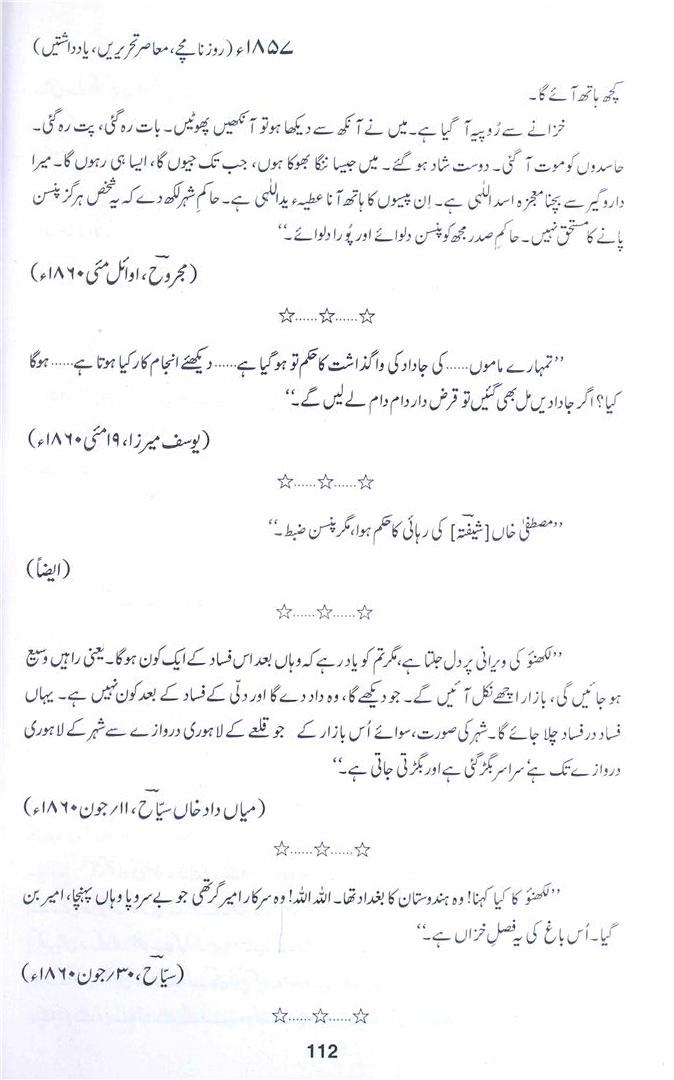 ۱۸۵۷ء (روزنامچے، معاصر تحریریں، یادداشتیں)
کچھ ہاتھ آئے گا۔
خزانے سے رُوپیہ آ گیا ہے۔ میں نے آنکھ سے دیکھا ہو تو آنکھیں پھوٹیں۔ بات رہ گئی، پت رہ گئی۔
حاسدوں کو موت آ گئی۔ دوست شاد ہو گئے۔ میں جیسا ننگا بھوکا ہوں، جب تک جیوں گا، ایسا ہی رہوں گا۔ میرا
دارو گیر سے بچنا معجزہ اسد اللٰہی ہے۔ اِن پیسوں کا ہاتھ آنا عطیہء ید اللٰہی ہے۔ حاکمِ شہر لکھ دے کہ یہ شخص ہرگز پنسن
پانے کا مستحق نہیں۔ حاکمِ صدر مجھ کو پنسن دلوائے اور پُورا دلوائے۔‘‘
(مجروحؔ، اوائل مئی ۱۸۶۰ء)
☆……☆……☆
’’تمہارے ماموں…… کی جاداد کی واگذاشت کا حکم تو ہو گیا ہے…… دیکھئے انجام کار کیا ہوتا ہے…… ہوگا
کیا؟ اگر جادادیں مل بھی گئیں تو قرض دار دام دام لے لیں گے۔‘‘
(یوسف میرزا، ۱۹ مئی ۱۸۶۰ء)
☆……☆……☆
’’مصطفیٰ خاں [شیفتہؔ] کی رہائی کا حکم ہوا، مگر پنسن ضبط۔‘‘
(ایضاً)
☆……☆……☆
’’لکھنؤ کی ویرانی پر دل جلتا ہے، مگر تم کو یاد رہے کہ وہاں بعد اس فساد کے ایک کون ہوگا۔ یعنی راہیں وسیع
ہو جائیں گی، بازار اچھے نکل آئیں گے۔ جو دیکھے گا، وہ داد دے گا اور دلّی کے فساد کے بعد کون نہیں ہے۔ یہاں
فساد در فساد چلا جائے گا۔ شہر کی صورت، سوائے اُس بازار کے جو قلعے کے لاہوری دروازے سے شہر کے لاہوری
دروازے تک ہے‘ سراسر بگڑ گئی ہے اور بگڑتی جاتی ہے۔‘‘
(میاں داد خاں سیّاحؔ، ۱۱؍ جون ۱۸۶۰ء)
☆……☆……☆
’’لکھنؤ کا کیا کہنا! وہ ہندوستان کا بغداد تھا۔ اللہ اللہ! وہ سرکار امیر گر تھی جو بے سر و پا وہاں پہنچا، امیر بن
گیا۔ اُس باغ کی یہ فصلِ خزاں ہے۔‘‘
(سیّاحؔ، ۳۰؍ جون ۱۸۶۰ء)
☆……☆……☆
112